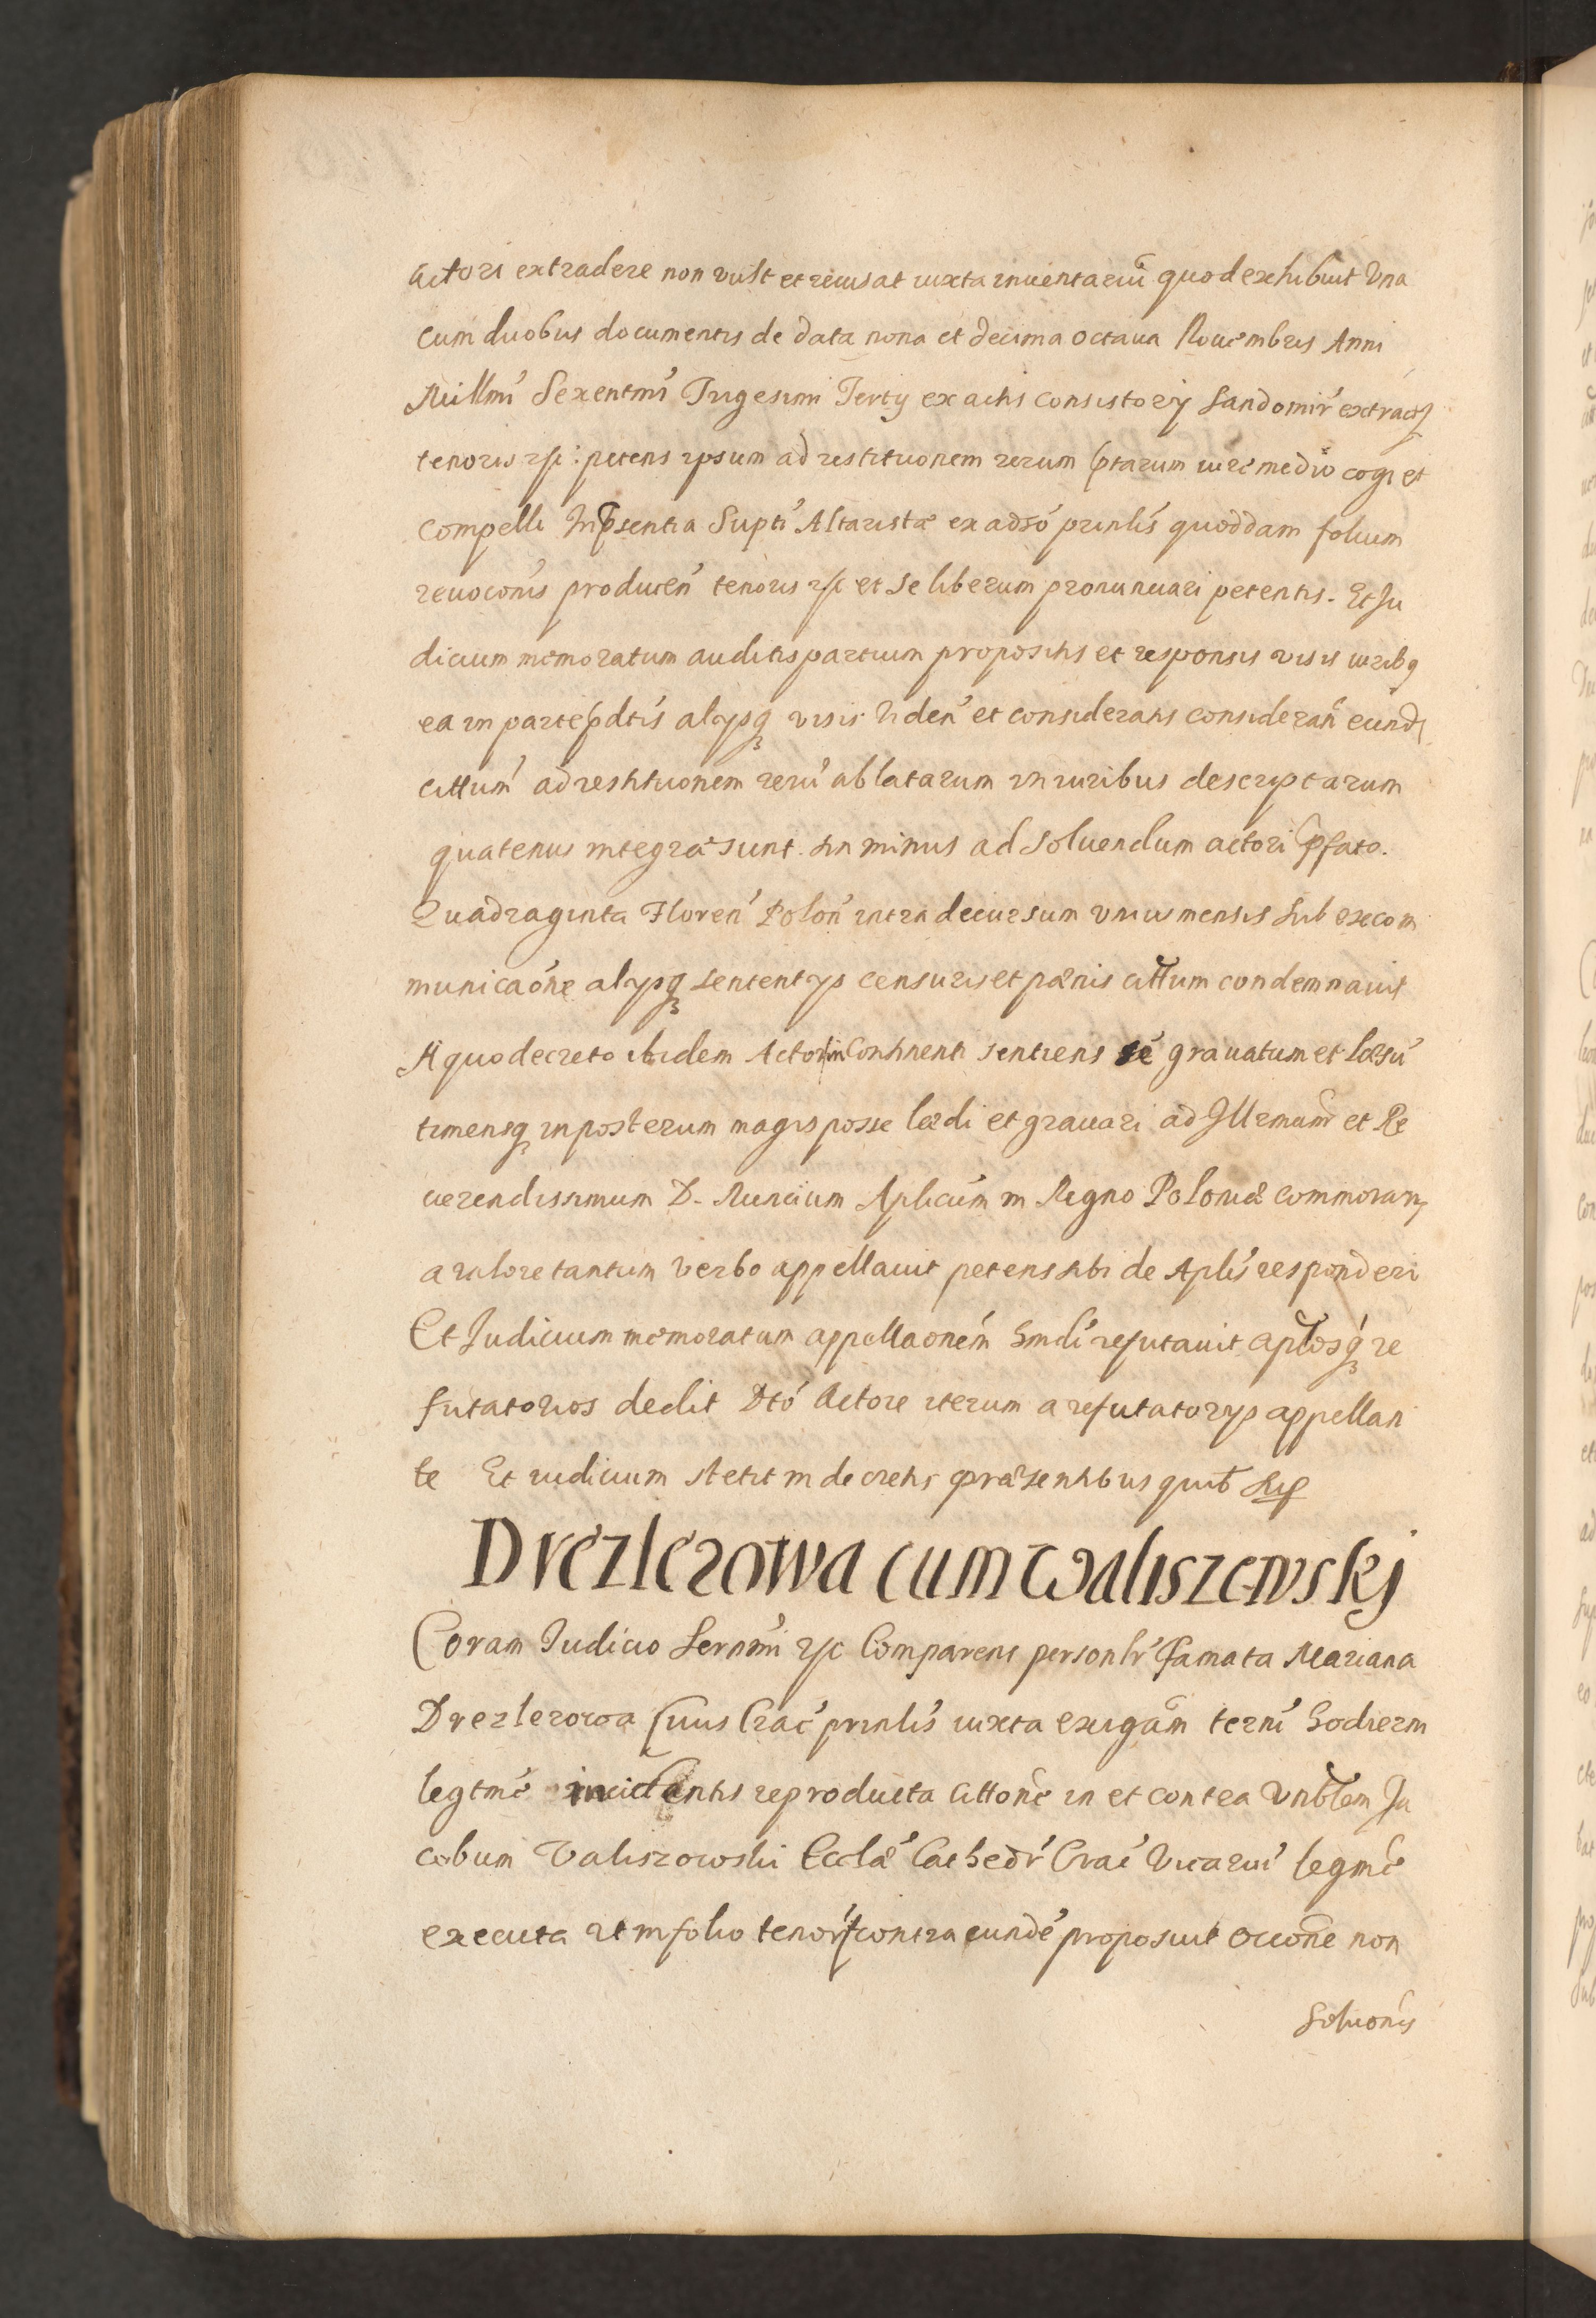 actori extradere non vult et recusat iuxta inventariũ quod exhibuit Vna
cum duobus documentis de data nona et decima octava Novembris Anni
Millmi Sexentmi Trigesimi Tertij ex actis Consistorij Sandomir extract
tenoris etc: petens ipsum ad restitutionem rerum ptarum iure medio cogi et
compelli In psentia Supti Altaristæ ex adso prinlis quoddam folium
revoconis producen tenoris etc et se liberum pronunciari petentis. Et Ju
dicium memoratum auditis partium propositis et responsis visis iurib9
ea in parte pdtis alijsq visis viden et consideratis consideran eund
cittum ad restitutionem rerũ ablatarum in iuribus descriptarum
quatenus integræ sunt sin minus ad soluendum actori pfato.
Quadraginta Floren Polon intra decursum vnius mensis sub excom
municaone alijsq sententijs censuris et pænis cittum condemnavit
A quo decreto ibidem Actor in Continenti sentiens sé gravatum et læsũ
timensq in posterum magis posse lædi et gravari ad Illrmum et Re
verendissimum D. Nuncium Aplicum in Regno Poloniæ commoran
a valore tantum verbo appellavit petens sibi de Aplis responderi
Et Judicium memoratum appellaonem hmdi refutavit aptosq re
futatorios dedit Dto Actore iterum a refutatorijs appellan
te Et iudicium stetit in decretis præsentibus quib sup
Drezlerowa cum Waliszewskj
Coram Judicio Sernmi etc Comparens personlr famata Mariana
Drezlerowa Civis Crac prinlis iuxta exigam termi hodierni
legtmé incidentis reproducta cittone in et contra Vnblem Ja
cobum Valiszowski Ecclæ Cathedr Crac Vicarium legmé
executa ut in folio tenor contra eundé proposuit occone non
Soluonis